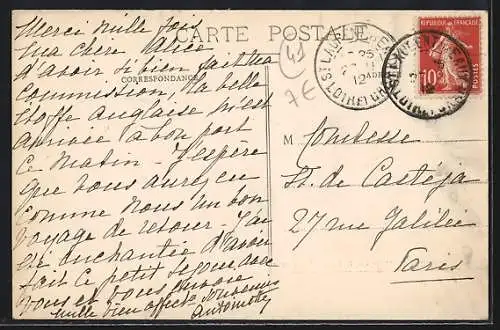 CARTE POSTALE
CORRESPONDANCE
Merci mille fois
ma chère Alice
d'avoir si bien fait ma
commission, la belle
étoffe anglaise m'est
arrivée à bon port
ce matin - J'espère
que vous aurez eu
comme nous un bon
voyage de retour - J'ai
été enchantée d'avoir
fait ce petit séjour avec
vous et vous envoie
mille bien affectx souvenirs
Antoinette
41
7€
ST LAURENT
25
12
LOIR-ET-CHER
REPUBLIQUE FRANÇAISE
10
POSTES
M Comtesse
St. de Castéja
27 rue Galilée
Paris